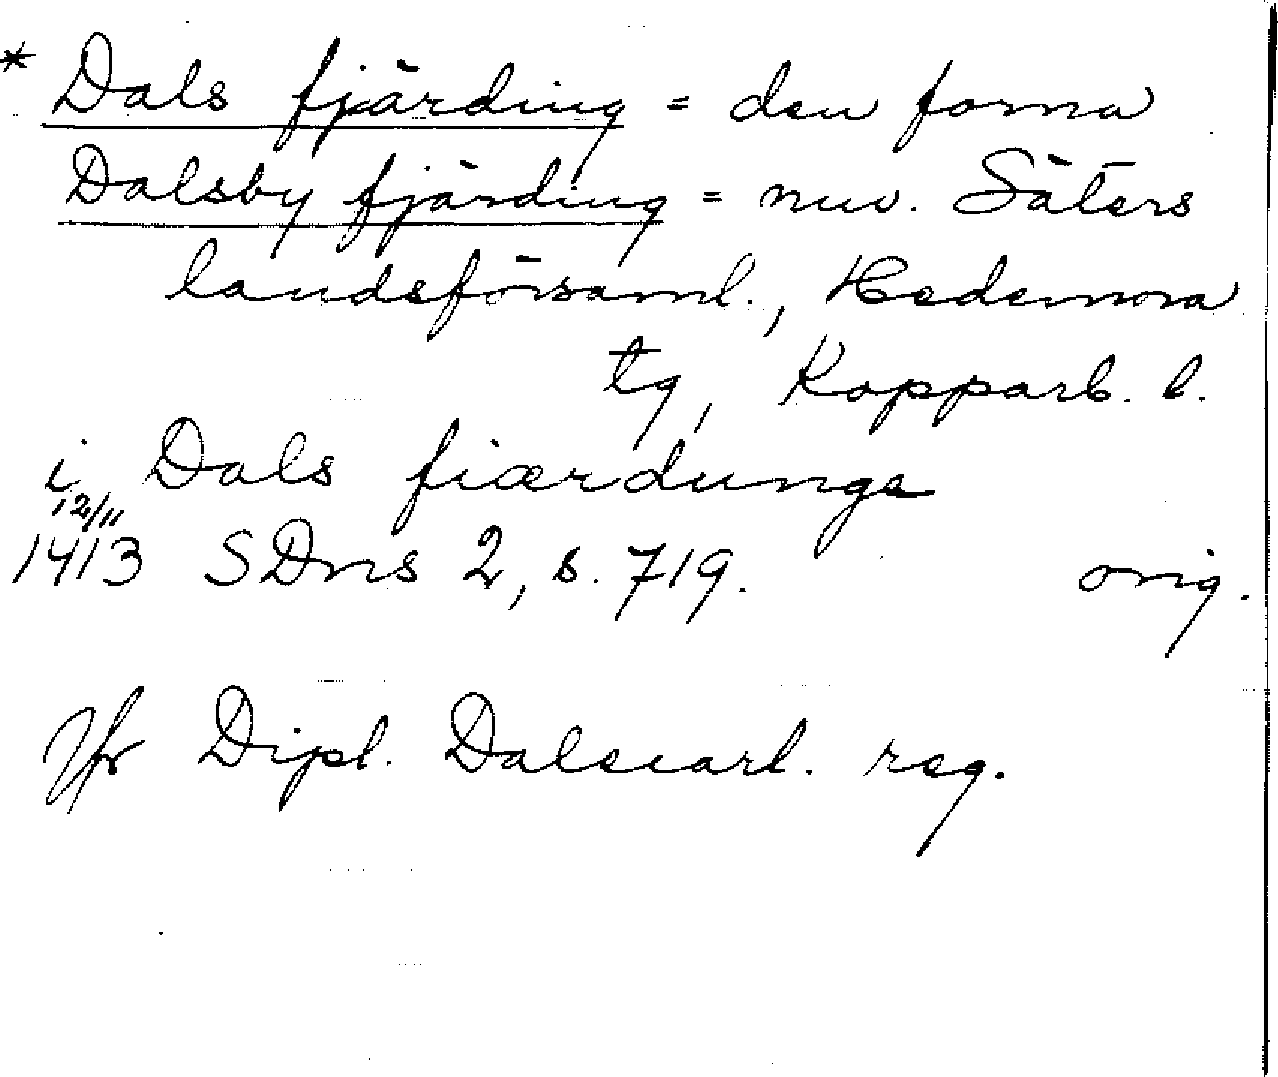 * Dals fjärding = den forna
Dalsby fjärding = nuv. Säters
landsförsaml., Hedemora
tg, Kopparb. l.
i Dals fiærdunge
12/11
1413 SDns 2, s. 719. orig.
Jfr Dipl. Dalecarl. reg.